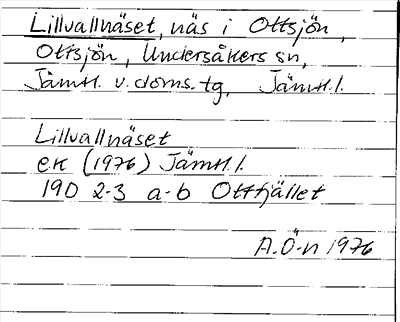 Lillvallnäset, näs i Ottsjön,
Ottsjön, Undersåkers sn,
Jämtl. v. doms. tg, Jämtl. l.
Lillvallnäset
ek (1976) Jämtl. l.
19D 2-3 a-b Ottfjället
A.Ö-n 1976